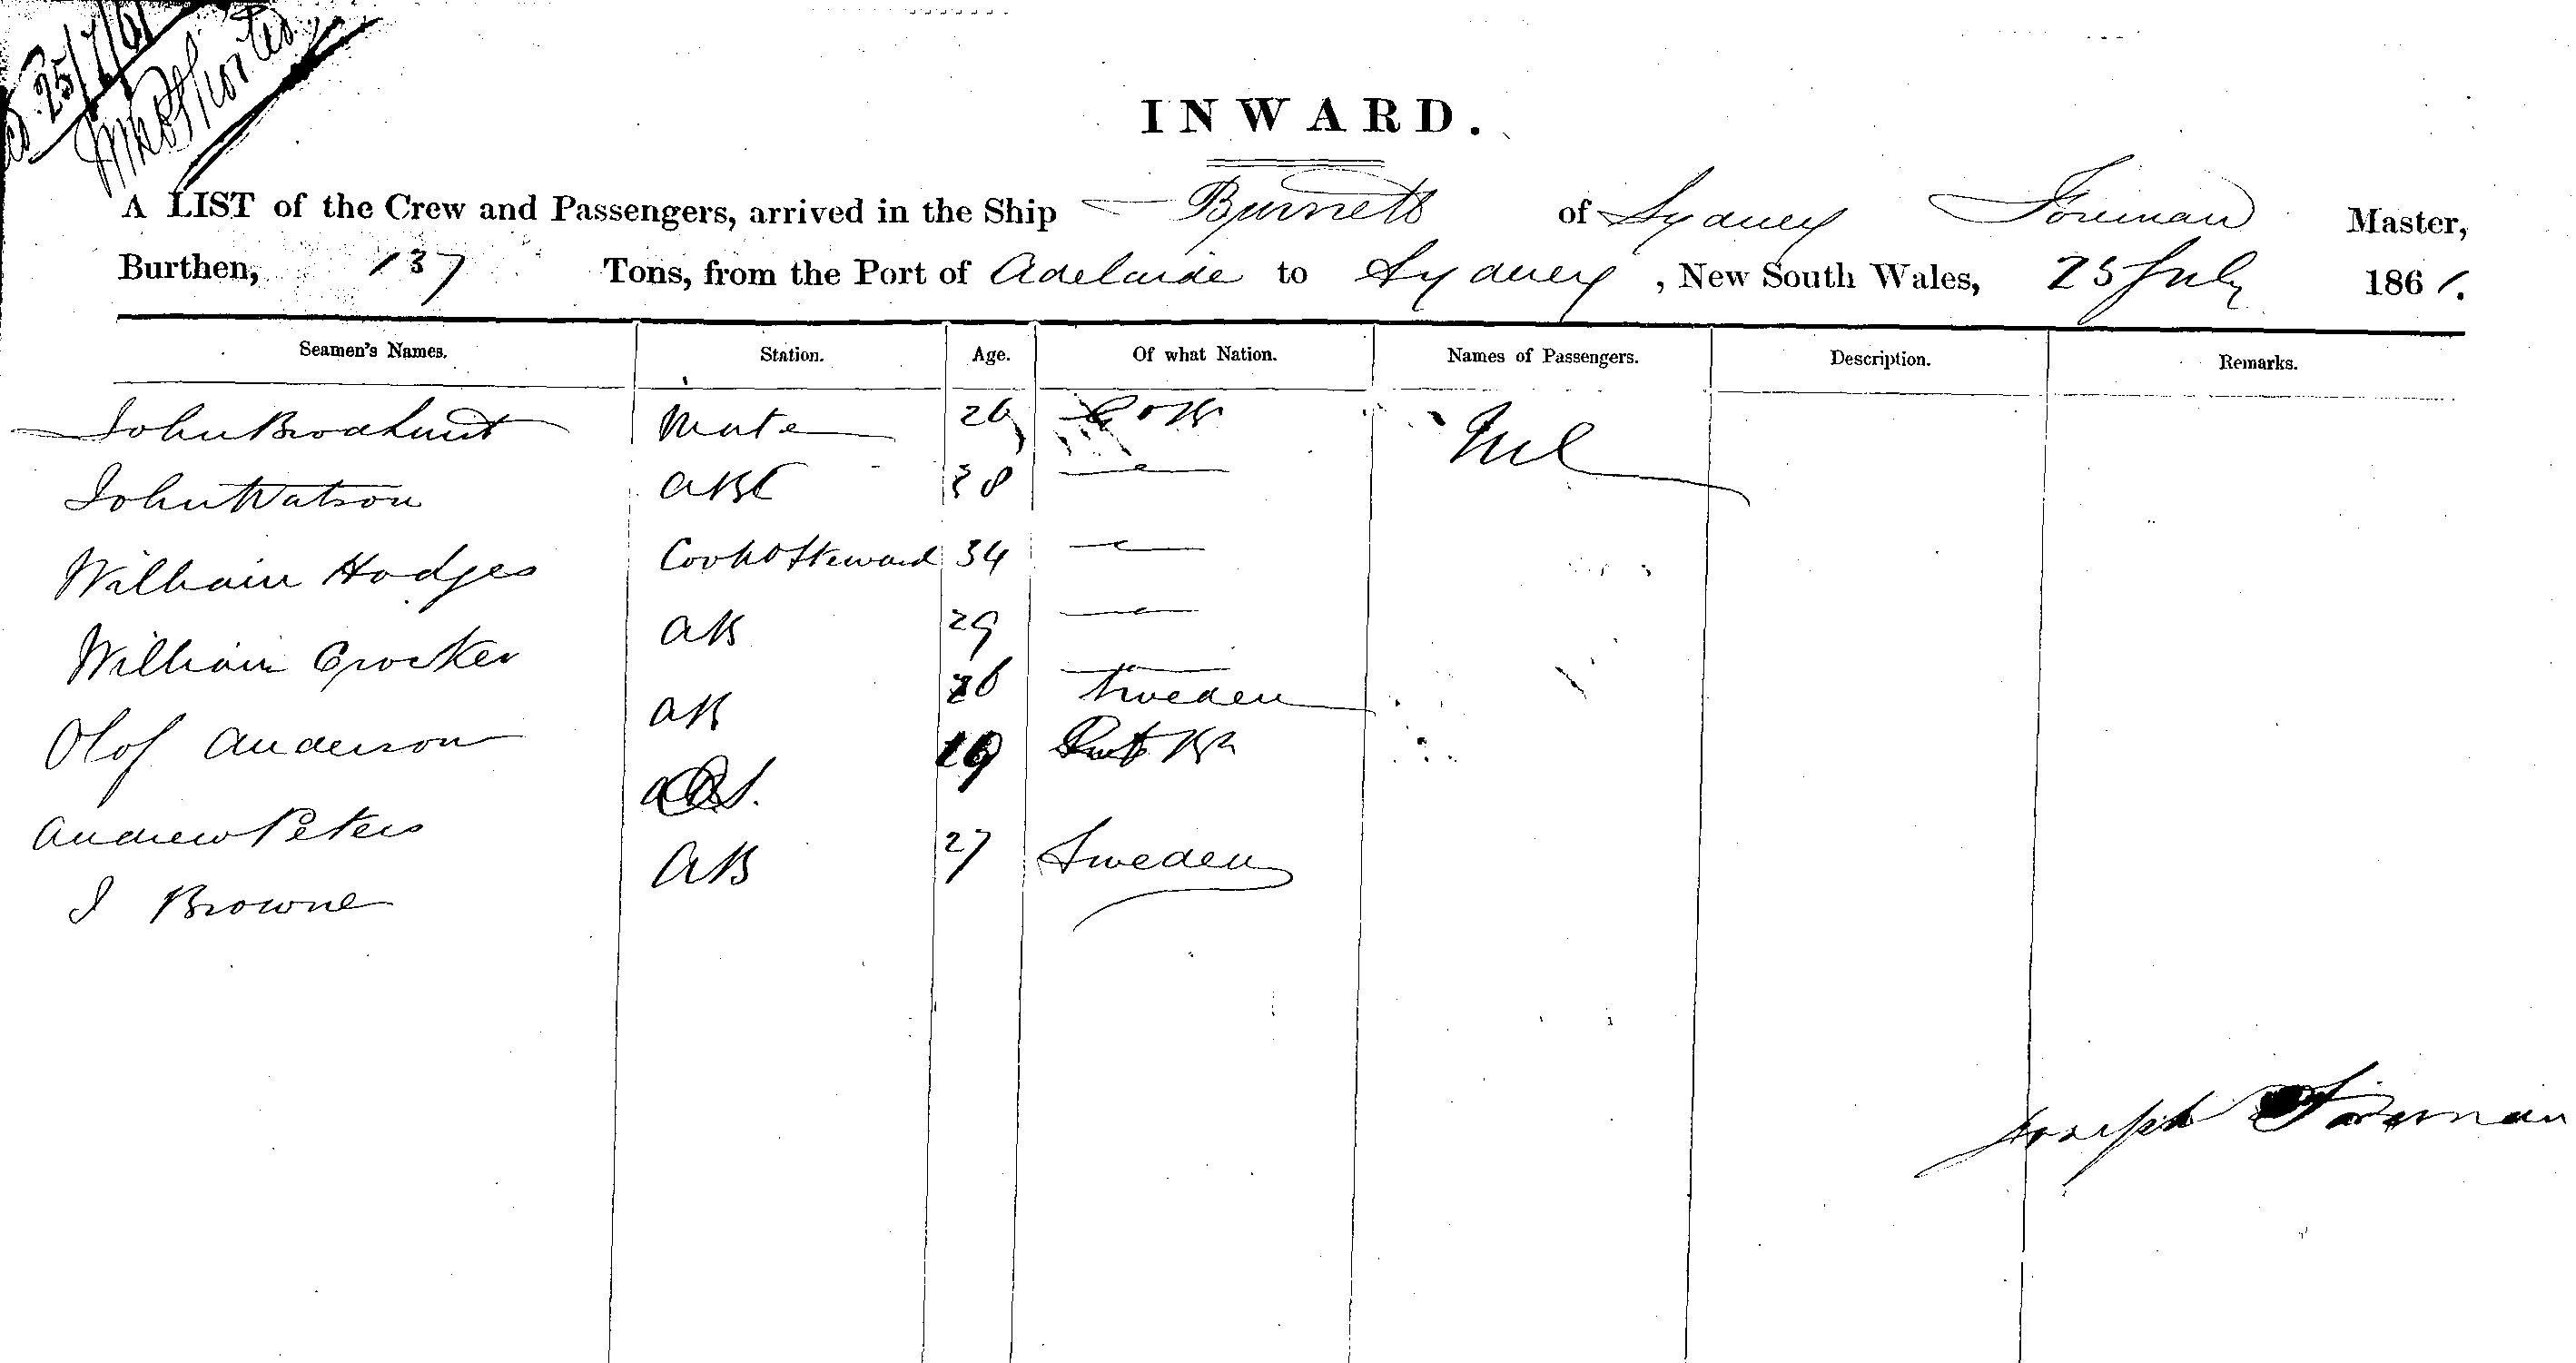 25/7/61
INWARD.
A LIST of the Crew and Passengers, arrived in the Ship Burnett of Sydney Foreman Master,
Burthen, 137 Tons, from the Port of Adelaide to Sydney, New South Wales, 25 July 1861.
Seamen's Names. Station. Age. Of what Nation. Names of Passengers. Description. Remarks.
John Broadhurst Mate 26 Nil
John Watson 38
William Hodges Cook & Steward 34
William Crocker AB 29
Olof Anderson AB 26 Sweden
Andrew Peters 19
J Browne AB 27 Sweden
Joseph Foreman